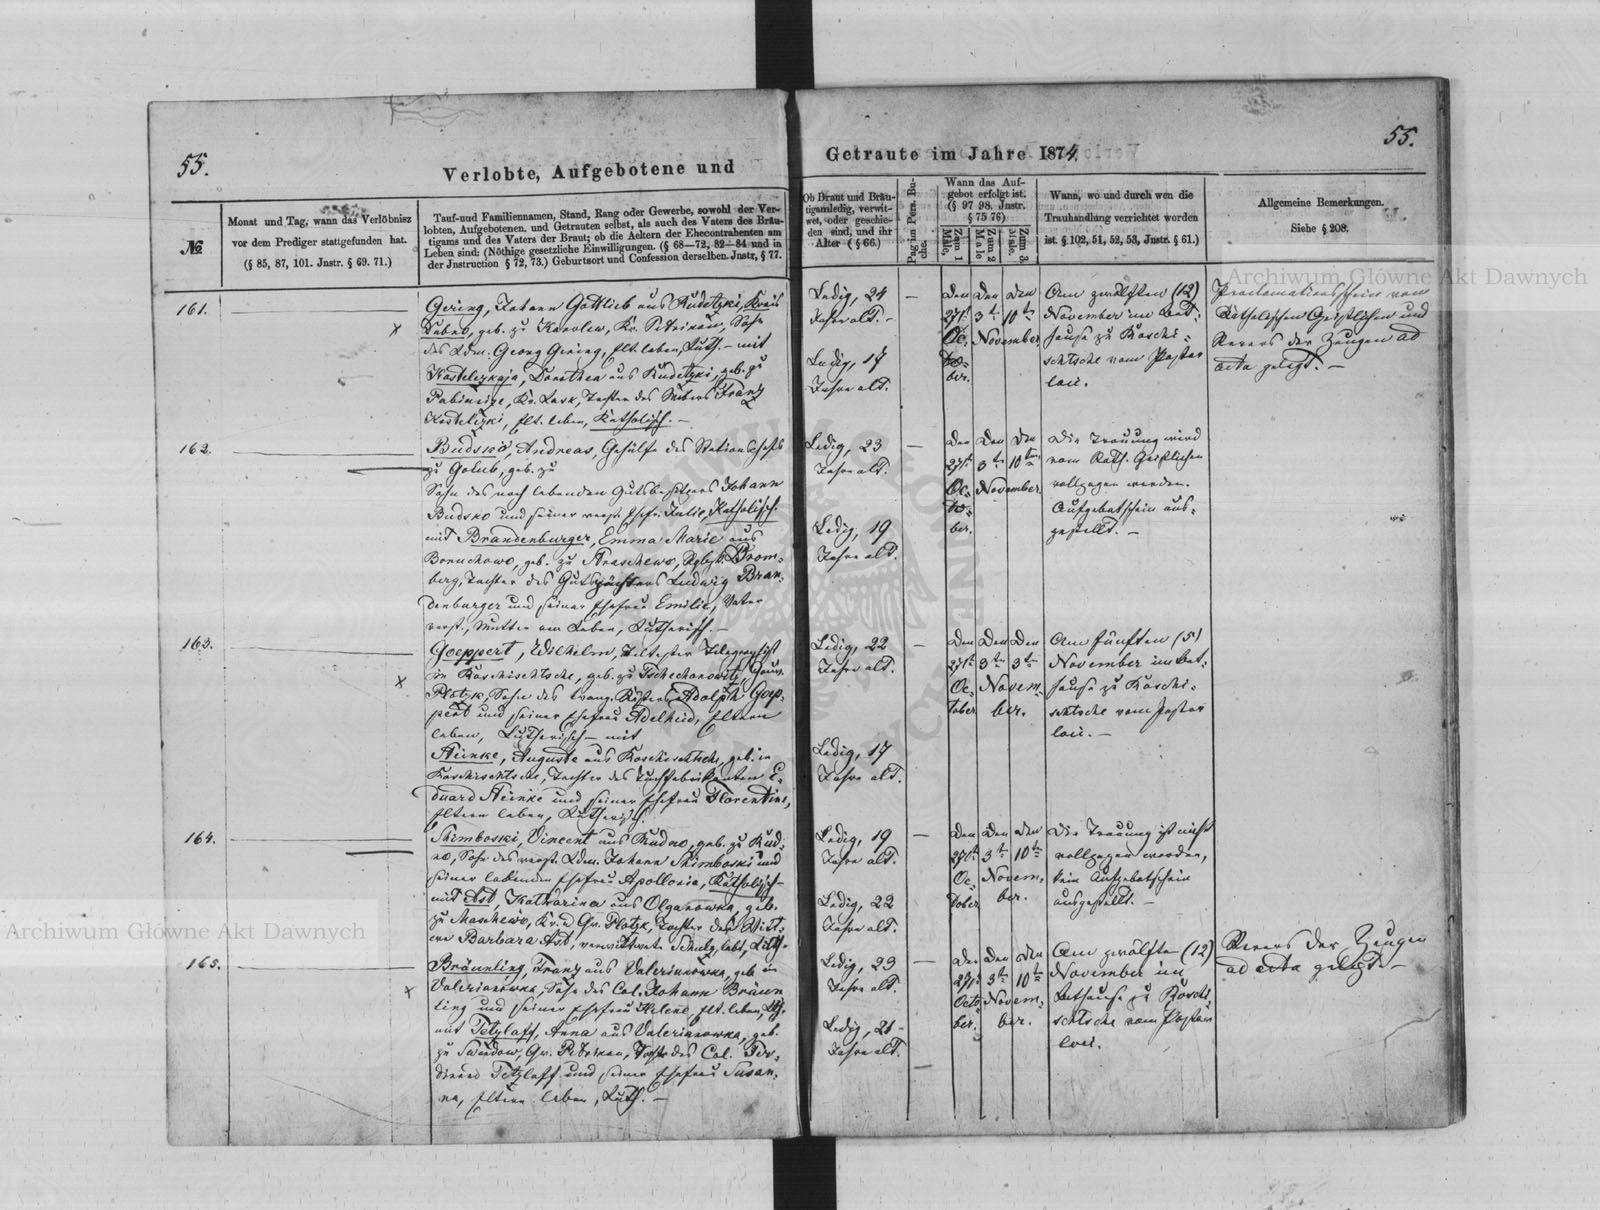 55.
Verlobte, Aufgebotene und
Getraute im Jahre 1874.
55.
№
Monat und Tag, wann das Verlöbnisz
vor dem Prediger stattgefunden hat.
(§ 85, 87, 101. Jnstr. § 69. 71.)
Tauf-und Familiennamen, Stand, Rang oder Gewerbe, sowohl der Ver-
lobten, Aufgebotenen. und Getrauten selbst, als auch des Vaters des Bräu-
tigams und des Vaters der Braut; ob die Aeltern der Ehecontrahenten am
Leben sind: (Nöthige gesetzliche Einwilligungen. (§ 68—72, 82—84 und in
der Jnstruction § 72, 73.) Geburtsort und Confession derselben. Jnstr, § 77.
Ob Braut und Bräu-
tigam ledig, verwit-
wet, oder geschie-
den sind, und ihr
Alter (§ 66.)
Pag im Pers. Bu-
che.
Wann das Auf-
gebot erfolgt ist.
(§ 97 98. Jnstr.
§ 75 76)
Zum 1
Male,
Zum 2
Male
Zum 3.
Male.
Wann, wo und durch wen die
Trauhandlung verrichtet worden
ist. § 102, 51, 52, 53, Jnstr. § 61.)
Allgemeine Bemerkungen.
Siehe § 208.
161.
Gering, Johann Gottlieb aus Rudetzki, Kreis
geb. zu Karolew, Kr. Petrikau, Sohn
des Ldm. Georg Gering, Elt. leben, Luth. — mit
Dorothea aus Rudetzki, geb. zu
Pabianize, Kr. Lask, Tochter des Webers Franz
Kosteletzki, Elt. leben, Katholisch. —
Ledig, 24
Jahre alt. —
Ledig, 17
Jahre alt.
Den 27t. Oc-to-ber.
Den 3t.
Den 10tn
November
Am zwölften (12)
November im Bet-
hause zu Koschi-
schtsche vom Pastor
Loei.
Proclamationsschein vom
Katholischen Geistlichen und
Revers der Zeugen ad
acta gelegt. —
162.
Budsko, Andreas, Gehülfe des Stationschefs
zu Golub, geb. zu
Sohn des noch lebenden Gutsbesitzers Johann
Budsko und seiner verst. Ehefr. Julie, Katholisch.
mit Brandenburger, Emma Marie aus
Boruchowo, geb. zu Rgbz. Brom-
berg, Tochter des Gutspächters Ludwig Bran-
denburger und seiner Ehefrau Emilie, Vater
verst., Mutter am Leben, Lutherisch. —
Ledig, 23
Jahre alt.
Ledig, 19
Jahre alt.
Den 27t. Oc-to-ber.
Den 3t.
Den 10tn
November.
Die Trauung wird
vom Kath. Geistlichen
vollzogen werden.
Aufgebotschein aus-
gestellt. —
163.
Goeppert, Wilhelm, Telegraphist
in Koschischtsche, geb. zu Tschechanowitz, Gouv.
Plotzk, Sohn des evang. Küsters Adolph Goep-
pert und seiner Ehefrau Adelheid, Eltern
leben, Lutherisch — mit
Steinke, Auguste aus Koschischtsche, geb. in
Koschischtsche, Tochter des Tuchfabrikanten E-
duard Steinke und seiner Ehefrau Florentine,
Eltern leben, Lutherisch.
Ledig, 22
Jahre alt.
Ledig, 17
Jahre alt.
Den 27t. Oc-tober
Den 3tn
Den 3tn
Novem-
ber.
Am fünften (5)
November im Bet-
hause zu Koschi-
schtsche vom Pastor
Loei. —
164.
Skimboski, Vincent aus Rudno, geb. zu Rud-
no, Sohn des verst. Ldm. Johann Skimboski und
seiner lebenden Ehefrau Apollonia, Katholisch —
mit Ast, Katharina aus Olganowka, geb.
zu Maschewo, Kr. u Gv. Plotzk, Tochter der Witt-
we Barbara Ast, verwittwete Schulz, lebt, Luth.
Ledig, 19
Jahre alt.
Ledig, 22
Jahre alt.
Den 27t. Oc-tober
Den 3t.
Den 10tn
Novem-
ber.
Die Trauung ist nicht
vollzogen worden,
kein Aufgebotschein
ausgestellt. —
165.
Bräunling, Franz aus Valerianowka, geb. in
Valerianowka, Sohn des Col. Johann Bräun
ling und seiner Ehefrau Helene, Elt. leben,
mit Tetzlaff, Anna aus Valerianowka, geb.
zu Gv. Petrikau, Tochter des Col. Fer-
dinand Tetzlaff und seiner Ehefrau Susan-
na, Eltern leben, Luth. —
Ledig, 23
Jahre alt.
Ledig, 21
Jahre alt.
Den 27t. Octo-ber.
Den 3t.
Den 10tn
Novem-
ber.
Am zwölften (12)
November im
Bethause zu Koschi-
schtsche vom Pastor
Loei.
Revers der Zeugen
ad acta gelegt. —
Archiwum Główne Akt Dawnych
Archiwum Główne Akt Dawnych